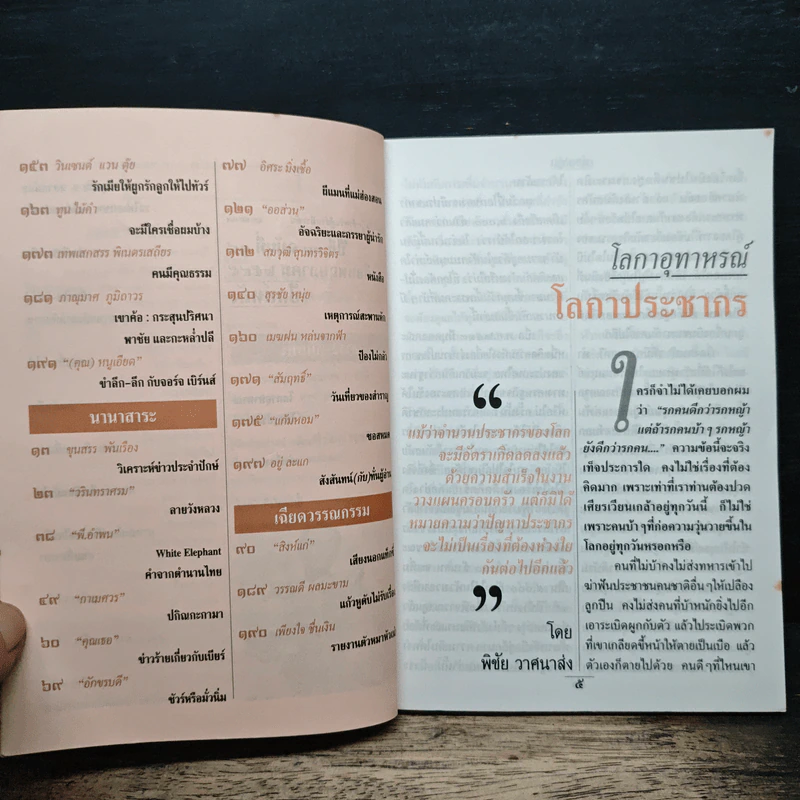 ๑๕๓ วินเซนต์ แวน คุ้ย
รักเมียให้ผูกรักลูกให้ไปทัวร์
๑๖๓ ทูน ไม้ค้ำ
จะมีใครเชื่อผมบ้าง
๑๗๓ เทพเสกสรร พิเนตรเสถียร
คนมีคุณธรรม
๑๘๑ ภาณุมาศ ภูมิถาวร
เขาค้อ : กระสุนปริศนา
พาชัย และกะหล่ำปลี
๑๙๑ “(คุณ) หนูเอียด”
ขำลึก-ลึก กับจอร์จ เบิร์นส์
นานาสาระ
๑๓ ขุนสรร พันเรือง
วิเคราะห์ข่าวประจำปักษ์
๒๓ “วรินทราศรม”
ลายวังหลวง
๓๘ “พี.อำพน”
White Elephant
คำจากตำนานไทย
๔๙ “กาเมศวร”
ปกิณกะกามา
๖๐ “คุณเธอ”
ข่าวร้ายเกี่ยวกับเบียร์
๖๙ “อักขรบดี”
ชัวร์หรือมั่วนิ่ม
๗๗ อิศระ มิ่งเชื้อ
ยีแมนที่แม่ฮ่องสอน
๑๒๑ “ออส่วน”
อัจฉริยะและภรรยาผู้น่ารัก
๑๓๒ สมวุฒิ สุนทรวิจิตร
หนังสือ
๑๔๐ สุรชัย หนุ่ย
เหตุการณ์สะพานหัก
๑๖๐ เมฆฝน หล่นจากฟ้า
ป้องไม่กลัว
๑๗๑ “สัมฤทธิ์”
วันเที่ยวของสำราญ
๑๗๕ “แก้มหอม”
ของหมด
๑๙๗ อยู่ ละแก
สังสันทน์ (กับ) พันผู้อ่าน
เฉียดวรรณกรรม
๙๐ “สิงห์แก่”
เสียงนอกแท็กซี่
๑๘๙ วรรณดี ผลมะขาม
แก้วหูดับไม่รับเรื่อง
๑๙๐ เพียงใจ ชื่นเงิน
รายงานตัวหมาหัวเน่า
โลกาอุทาหรณ์
โลกาประชากร
“
แม้ว่าจำนวนประชากรของโลก
จะมีอัตราเกิดลดลงแล้ว
ด้วยความสำเร็จในงาน
วางแผนครอบครัว แต่ก็มิได้
หมายความว่าปัญหาประชากร
จะไม่เป็นเรื่องที่ต้องห่วงใย
กันต่อไปอีกแล้ว
”
โดย
พิชัย วาศนาส่ง
ใครก็จำไม่ได้เคยบอกผม
ว่า “รกคนดีกว่ารกหญ้า
แต่ถ้ารกคนบ้าๆ รกหญ้า
ยังดีกว่ารกคน....” ความข้อนี้จะจริง
เท็จประการใด คงไม่ใช่เรื่องที่ต้อง
คิดมาก เพราะเท่าที่เราท่านต้องปวด
เศียรเวียนเกล้าอยู่ทุกวันนี้ ก็ไม่ใช่
เพราะคนบ้าๆ ที่ก่อความวุ่นวายขึ้นใน
โลกอยู่ทุกวันหรอกหรือ
คนที่ไม่บ้าคงไม่ส่งทหารเข้าไป
ฆ่าฟันประชาชนคนชาติอื่นๆ ให้เปลือง
ลูกปืน คงไม่ส่งคนที่บ้าหนักยิ่งไปอีก
เอาระเบิดผูกกับตัว แล้วไประเบิดพวก
ที่เขาเกลียดขี้หน้าให้ตายเป็นเบือ แล้ว
ตัวเองก็ตายไปด้วย คนดีๆ ที่ไหนเขา
๕